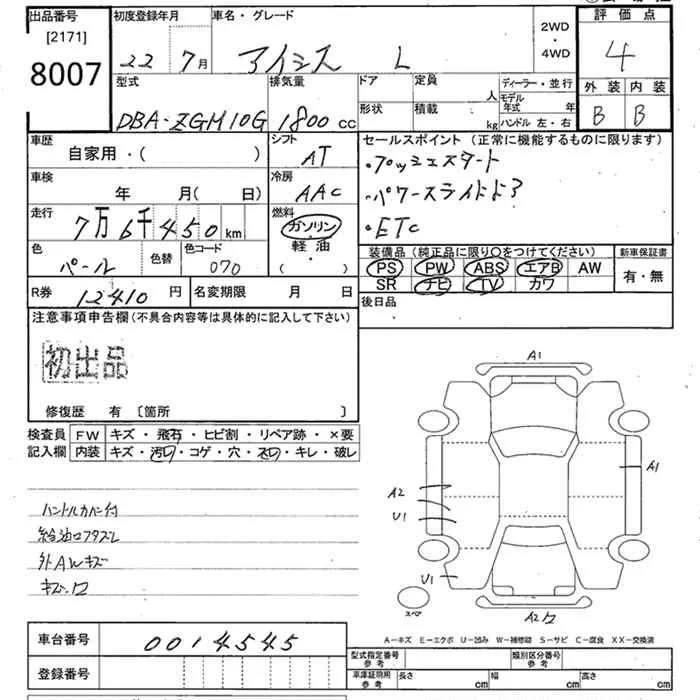 出品番号 初度登録年月 車名・グレード 2WD ・ 4WD 評価点
[2171]
8007
22 7月 アイシス L 4
外装 内装
B B
型式 排気量 ドア 定員 人 ディーラー・並行
形状 積載 kg モデル年式 年
ハンドル 左・右
DBA-ZGM10G 1800cc
車歴 シフト セールスポイント(正常に機能するものに限ります)
自家用・( ) AT
・プッシュスタート
車検 冷房
年 月( 日) AAC
・パワースライドドア
走行 燃料
7万6千450km ガソリン
・ETC
軽油
・( )
色 色替 色コード
パール 070
装備品(純正品に限り○をつけてください) 新車保証書
PS PW ABS エアB AW 有・無
SR ナビ TV カワ
R券 12410円 名変期限 月 日
後日品
注意事項申告欄(不具合内容等は具体的に記入して下さい)
初出品
修復歴 有 [箇所 ]
検査員 FW キズ・飛石・ヒビ割・リペア跡・×要
記入欄 内装 キズ・汚れ・コゲ・穴・スレ・キレ・破レ
ハンドルカバー付
給油口フタズレ
外AWキズ
A1
A1
A2
U1
U1
スペア
A2
A-キズ E-エクボ U-凹み W-補修跡 S-サビ C-腐食 XX-交換済
車台番号 0014545
登録番号
型式指定番号 参考 類別区分番号 参考
車庫証明用 参考 長さ cm 幅 cm 高さ cm